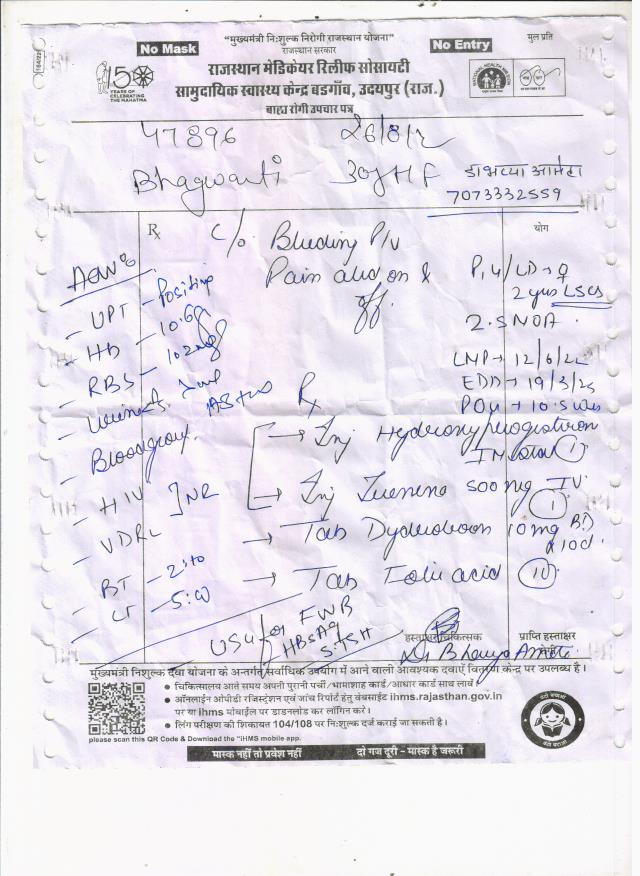 "मुख्यमंत्री निःशुल्क निरोगी राजस्थान योजना"
मुल प्रति
No Mask
राजस्थान सरकार
No Entry
राजस्थान मेडिकेयर रिलीफ सोसायटी
सामुदायिक स्वास्थ्य केन्द्र बडगाँव, उदयपुर (राज.)
बाह्य रोगी उपचार पत्र
150
YEARS OF
CELEBRATING
THE MAHATMA
47896
Bhagwanti
7073332559
Rx
योग
C/o Bleeding P/V
Pain and on &
off.
2 yrs LSCS
LMP → 12/6/22
EDD → 19/3/23
Adv
- UPT - Positive
- Hb - 10.6g
- RBS - 102mg
- Bloodgroup.
- HIV ] NR
- VDRL
- BT -
- CT -
Rx
→ Inj Hydroxyprogesteron
IM stat (1)
→ Inj 500 mg IV
(1)
→ Tab 10 mg BD
x 10d.
→ Tab Folic acid (10)
USG for FWB
HBsAg
S.TSH
हस्ताक्षर चिकित्सक
प्राप्ति हस्ताक्षर
मुख्यमंत्री निःशुल्क दवा योजना के अन्तर्गत सर्वाधिक उपयोग में आने वाली आवश्यक दवाऐं वितरण केन्द्र पर उपलब्ध है।
• चिकित्सालय आते समय अपनी पुरानी पर्ची/भामाशाह कार्ड/आधार कार्ड साथ लावें।
• ऑनलाईन ओपीडी रजिस्ट्रेशन एवं जांच रिपोर्ट हेतु वेबसाईट ihms.rajasthan.gov.in
पर या ihms मोबाईल पर डाउनलोड कर लॉगिन करें।
• लिंग परीक्षण की शिकायत 104/108 पर निःशुल्क दर्ज कराई जा सकती है।
please scan this QR Code & Download the "iHMS mobile app.
मास्क नहीं तो प्रवेश नहीं
दो गज दूरी - मास्क है जरूरी